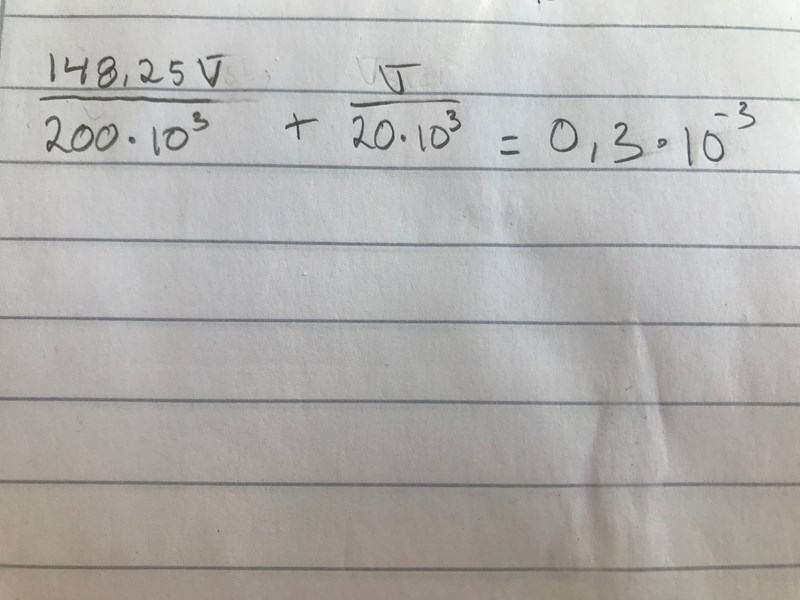 148,25 V / 200 · 10³ + V / 20 · 10³ = 0,3 · 10⁻³